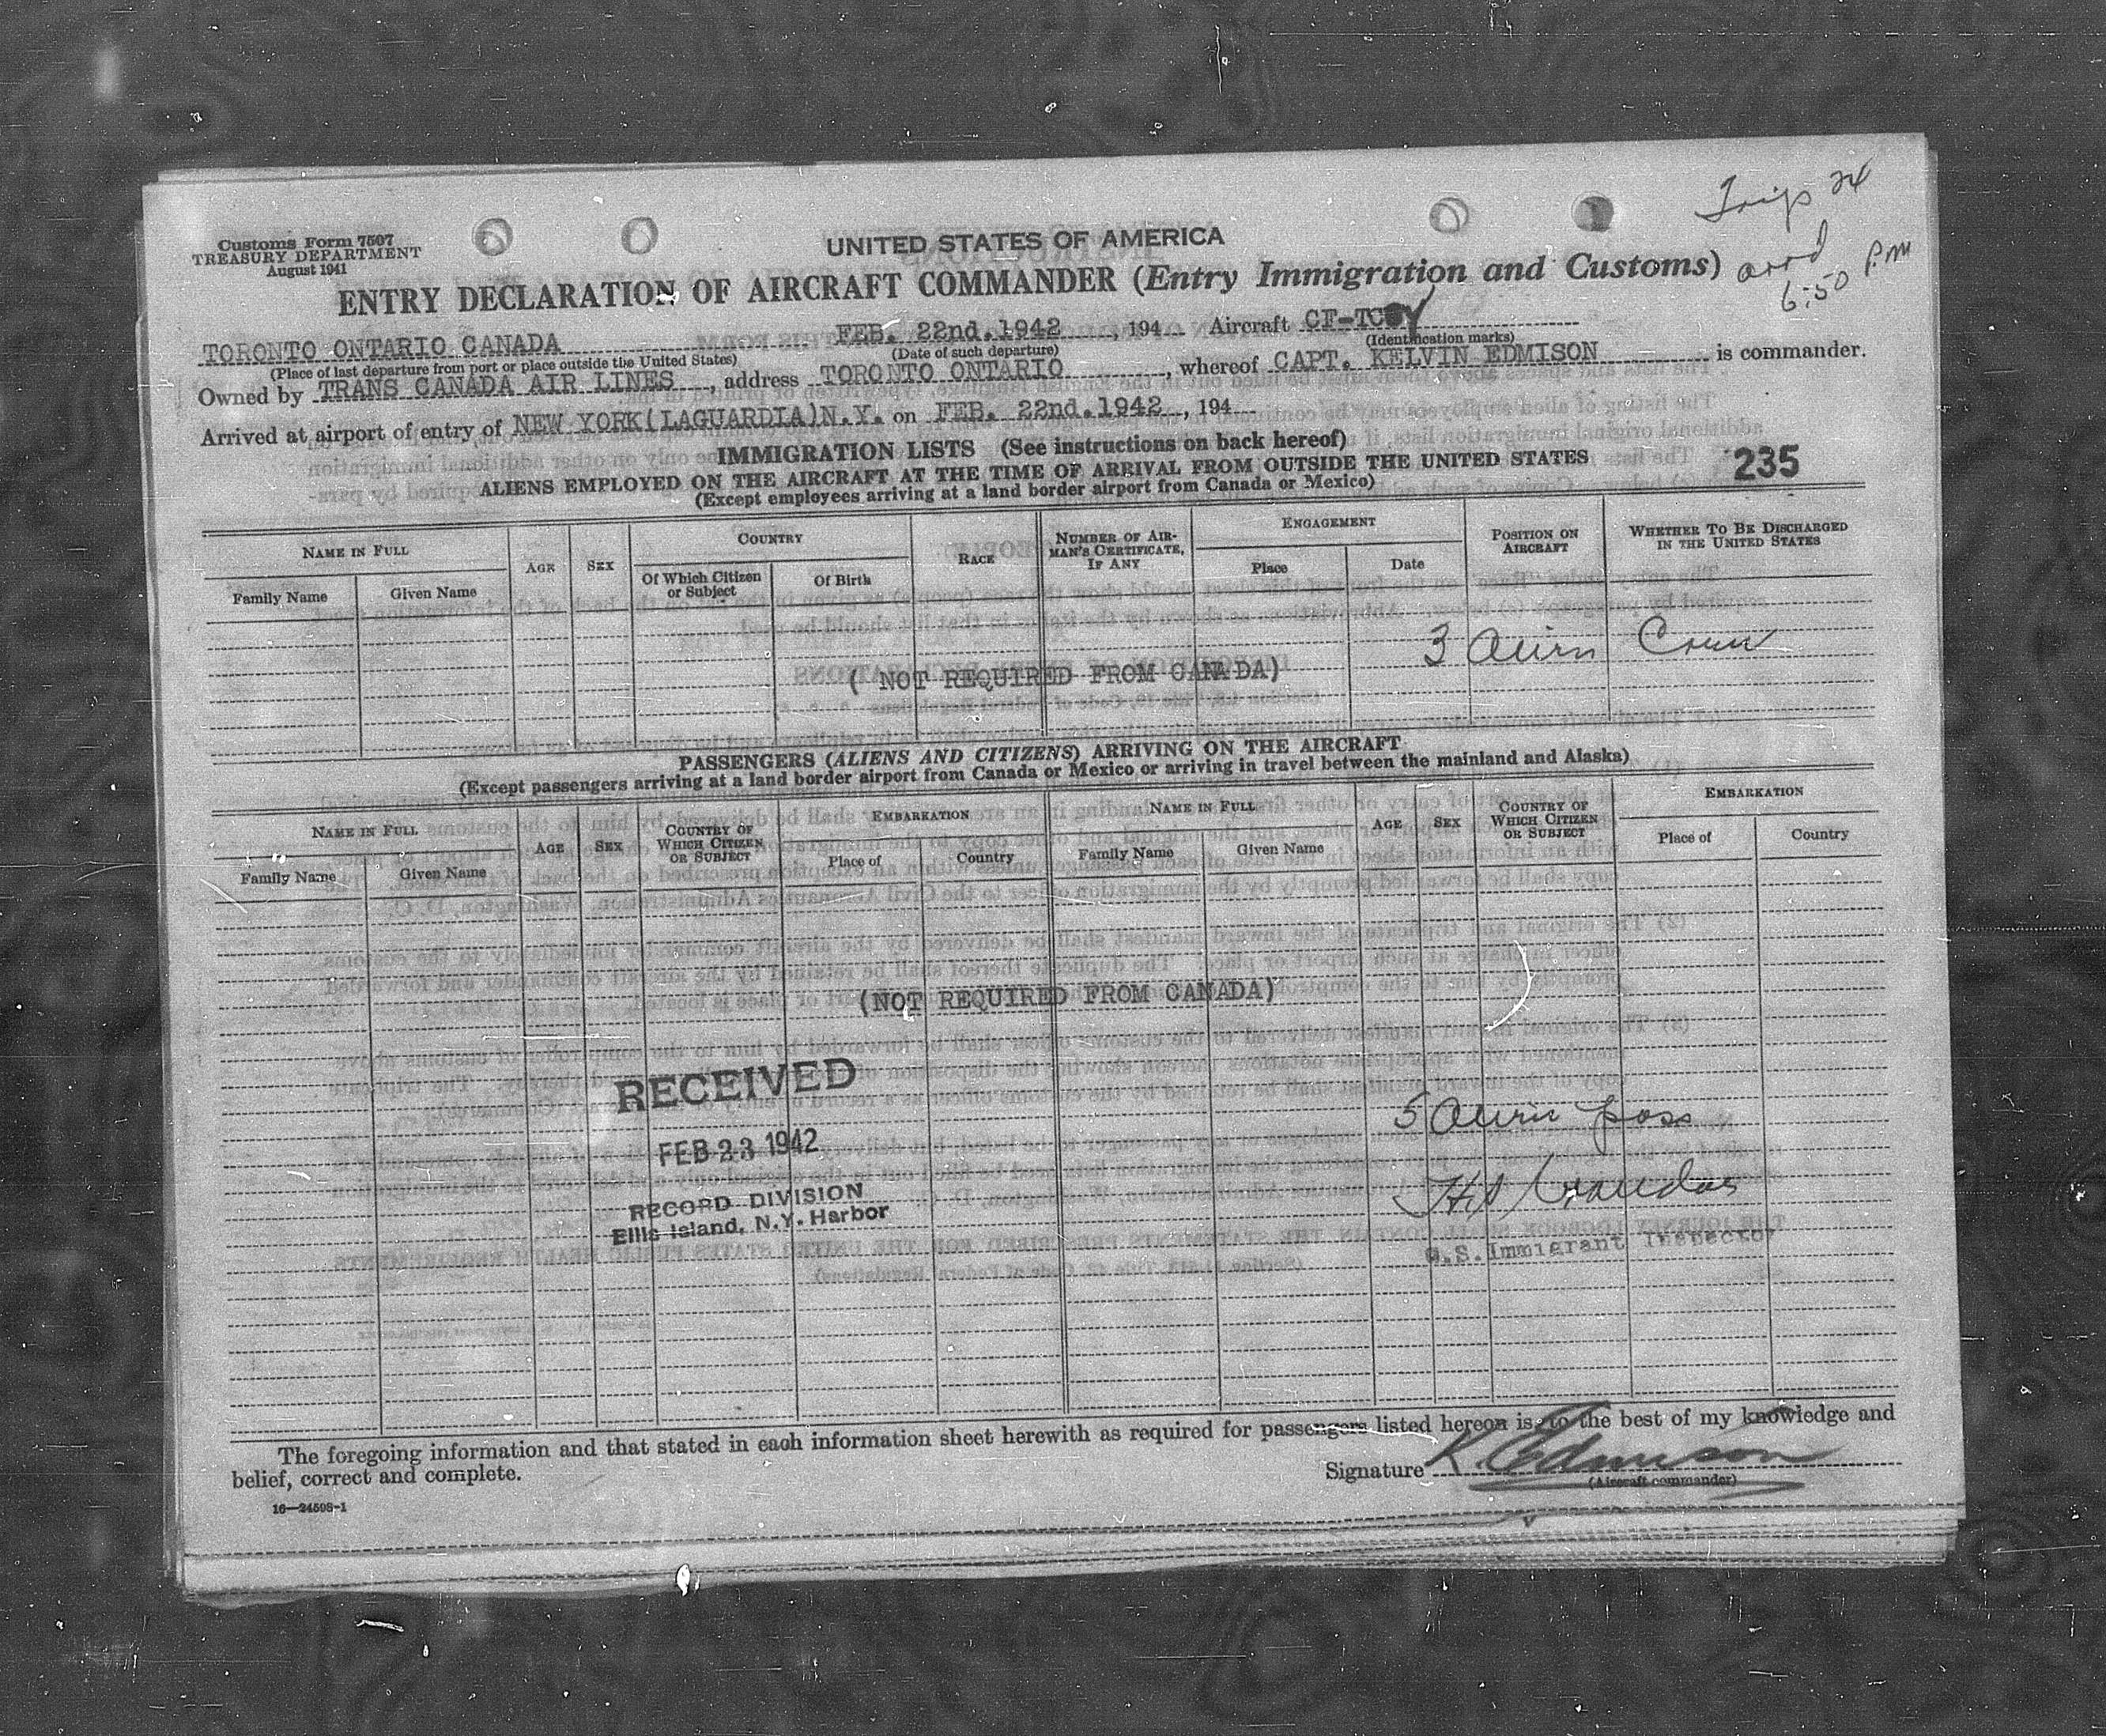 Trip 24
Customs Form 7507
TREASURY DEPARTMENT
August 1941
UNITED STATES OF AMERICA
ENTRY DECLARATION OF AIRCRAFT COMMANDER (Entry Immigration and Customs)
arrd
6:50 P.M
TORONTO ONTARIO CANADA FEB. 22nd.1942, 194 Aircraft CF-TC
(Place of last departure from port or place outside the United States) (Date of such departure) (Identification marks)
Owned by TRANS CANADA AIR LINES, address TORONTO ONTARIO, whereof CAPT. KELVIN EDMISON is commander.
Arrived at airport of entry of NEW YORK(LAGUARDIA)N.Y. on FEB. 22nd.1942, 194
IMMIGRATION LISTS (See instructions on back hereof)
235
ALIENS EMPLOYED ON THE AIRCRAFT AT THE TIME OF ARRIVAL FROM OUTSIDE THE UNITED STATES
(Except employees arriving at a land border airport from Canada or Mexico)
NAME IN FULL AGE SEX COUNTRY RACE NUMBER OF AIRMAN'S CERTIFICATE, IF ANY ENGAGEMENT POSITION ON AIRCRAFT WHETHER TO BE DISCHARGED IN THE UNITED STATES
Family Name Given Name Of Which Citizen or Subject Of Birth Place Date
3 Crew
( NOT REQUIRED FROM CANADA)
PASSENGERS (ALIENS AND CITIZENS) ARRIVING ON THE AIRCRAFT
(Except passengers arriving at a land border airport from Canada or Mexico or arriving in travel between the mainland and Alaska)
NAME IN FULL AGE SEX COUNTRY OF WHICH CITIZEN OR SUBJECT EMBARKATION NAME IN FULL AGE SEX COUNTRY OF WHICH CITIZEN OR SUBJECT EMBARKATION
Family Name Given Name Place of Country Family Name Given Name Place of Country
(NOT REQUIRED FROM CANADA)
RECEIVED
5 pass
FEB 23 1942
RECORD DIVISION
Ellis Island, N.Y. Harbor
U.S. Immigrant Inspector
The foregoing information and that stated in each information sheet herewith as required for passengers listed hereon is, to the best of my knowledge and
belief, correct and complete.
Signature K. Edmison
(Aircraft commander)
16—24598-1